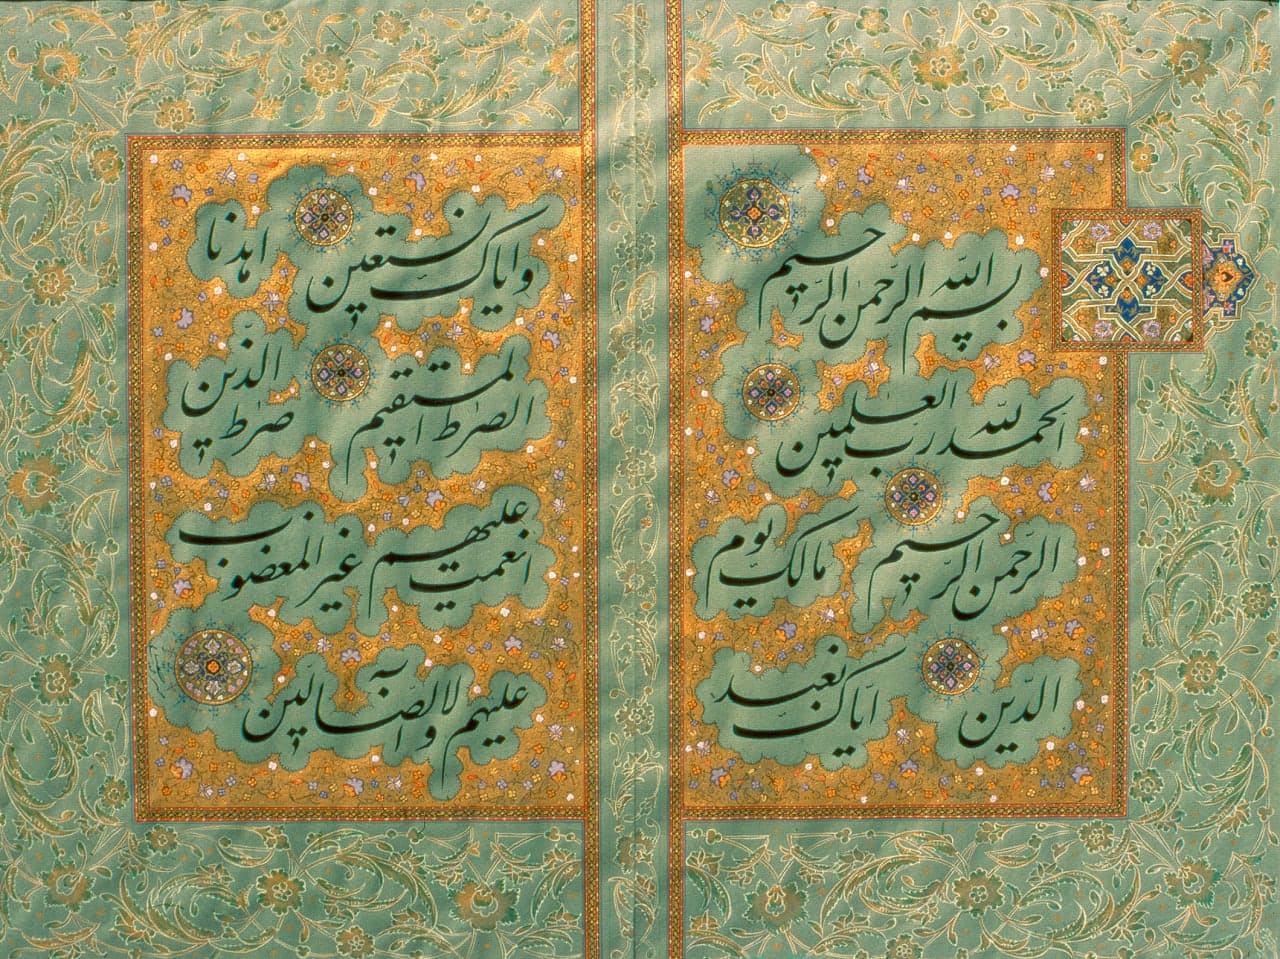 بسم الله الرّحمن الرّحیم
الحمد لله رب العٰلمین
الرّحمن الرّحیم مالک یوم
الدّین ایّاک نعبد
و ایّاک نستعین اهدنا
الصرٰط المستقیم صرٰط الذّین
انعمت علیهم غیر المغضوب
علیهم و لا الضّآلّین